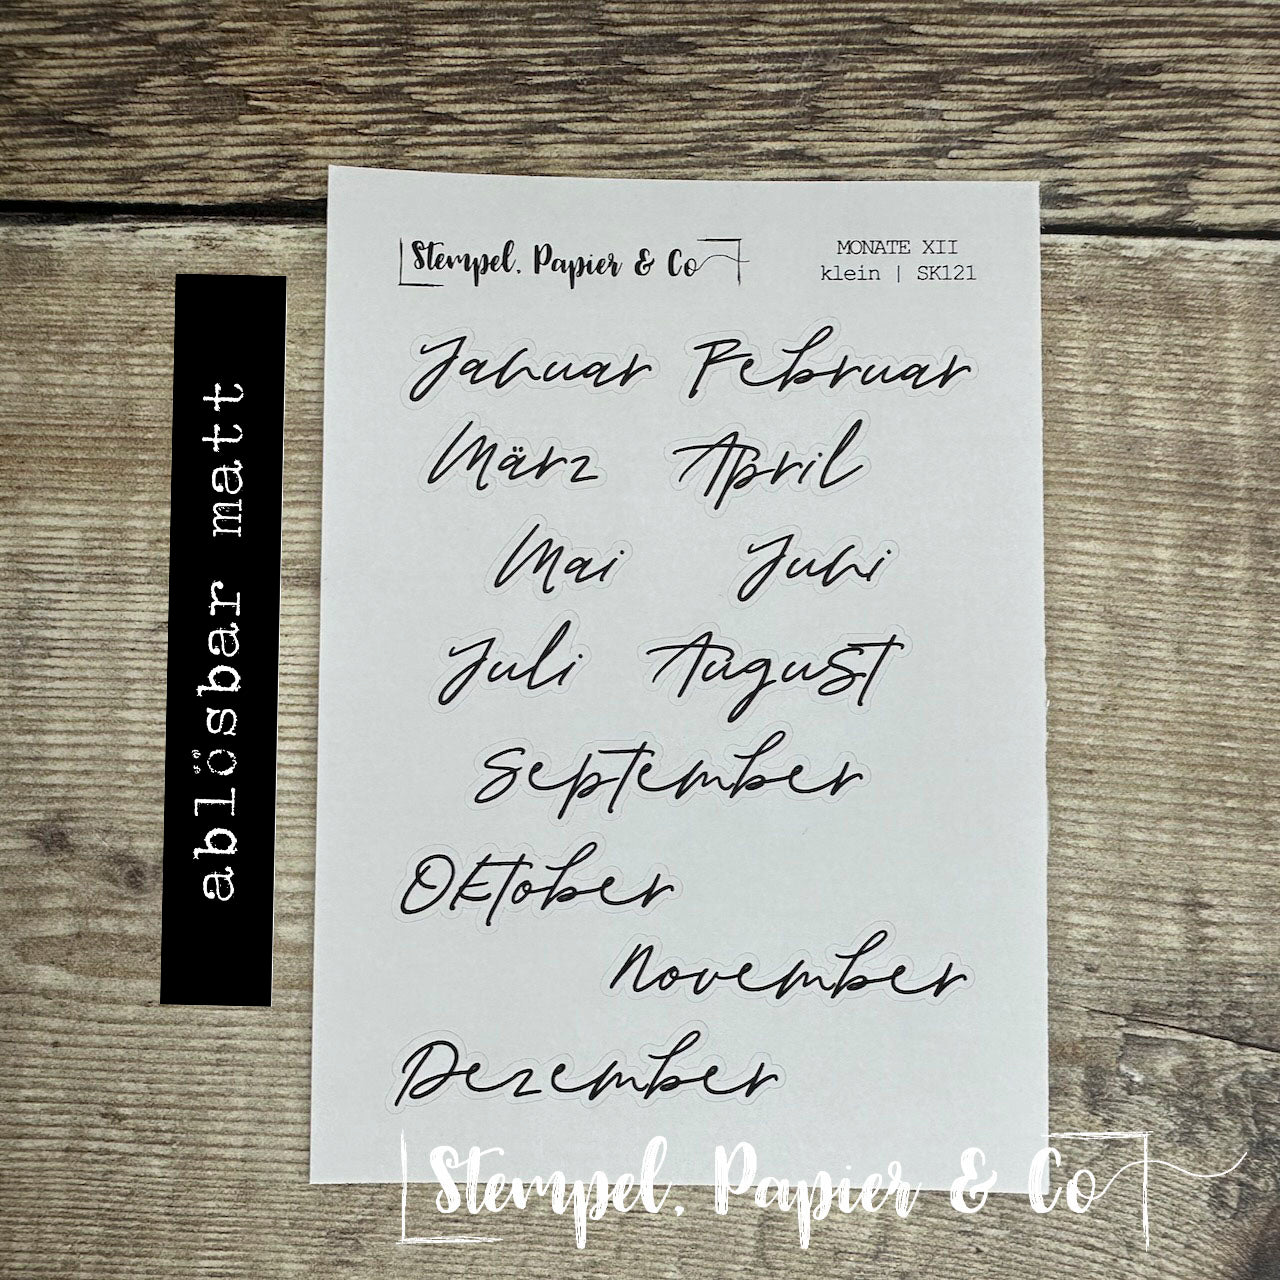 Stempel, Papier & Co
MONATE XII
klein | SK121
Januar Februar
März April
Mai Juni
Juli August
September
Oktober
November
Dezember
ablösbar matt
Stempel, Papier & Co